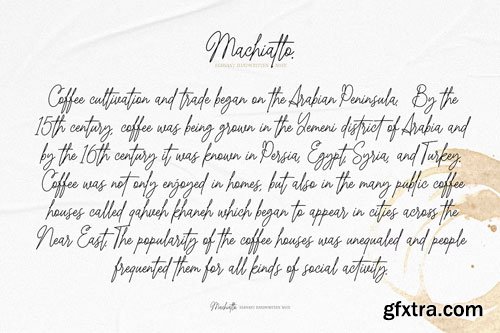 Machiatto.
ELEGANT HANDWRITTEN FONT
Coffee cultivation and trade began on the Arabian Peninsula. By the
15th century, coffee was being grown in the Yemeni district of Arabia and
by the 16th century it was known in Persia, Egypt, Syria, and Turkey.
Coffee was not only enjoyed in homes, but also in the many public coffee
houses called qahveh khaneh which began to appear in cities across the
Near East. The popularity of the coffee houses was unequaled and people
frequented them for all kinds of social activity.
Machiatto ELEGANT HANDWRITTEN FONT
gfxtra.com